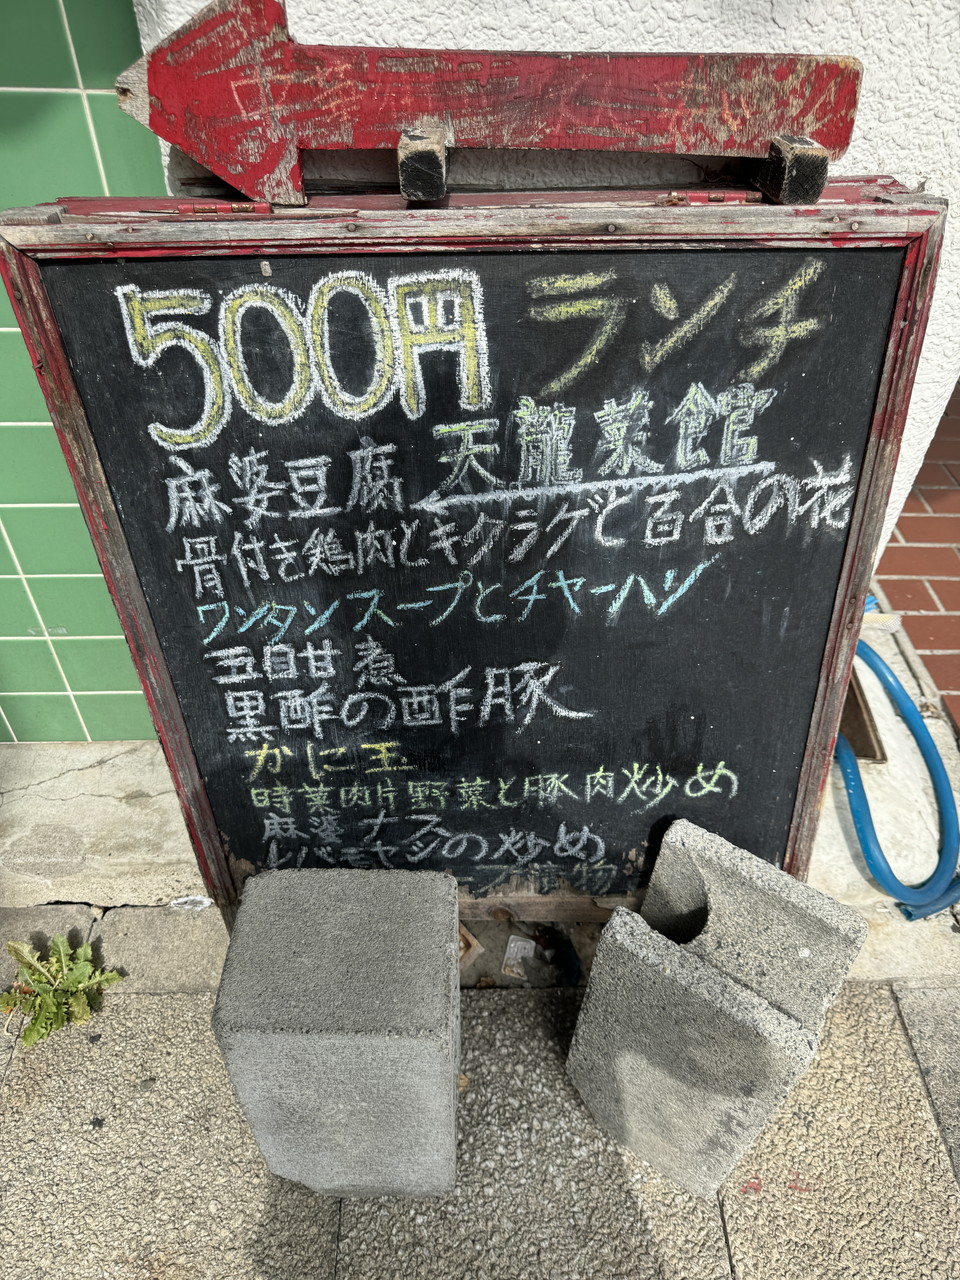 500円 ランチ
天龍菜館
麻婆豆腐
骨付き鶏肉とキクラゲと百合の花
ワンタンスープとチャーハン
五目甘煮
黒酢の酢豚
かに玉
時菜肉片 野菜と豚肉炒め
麻婆ナス
レバモヤシの炒め